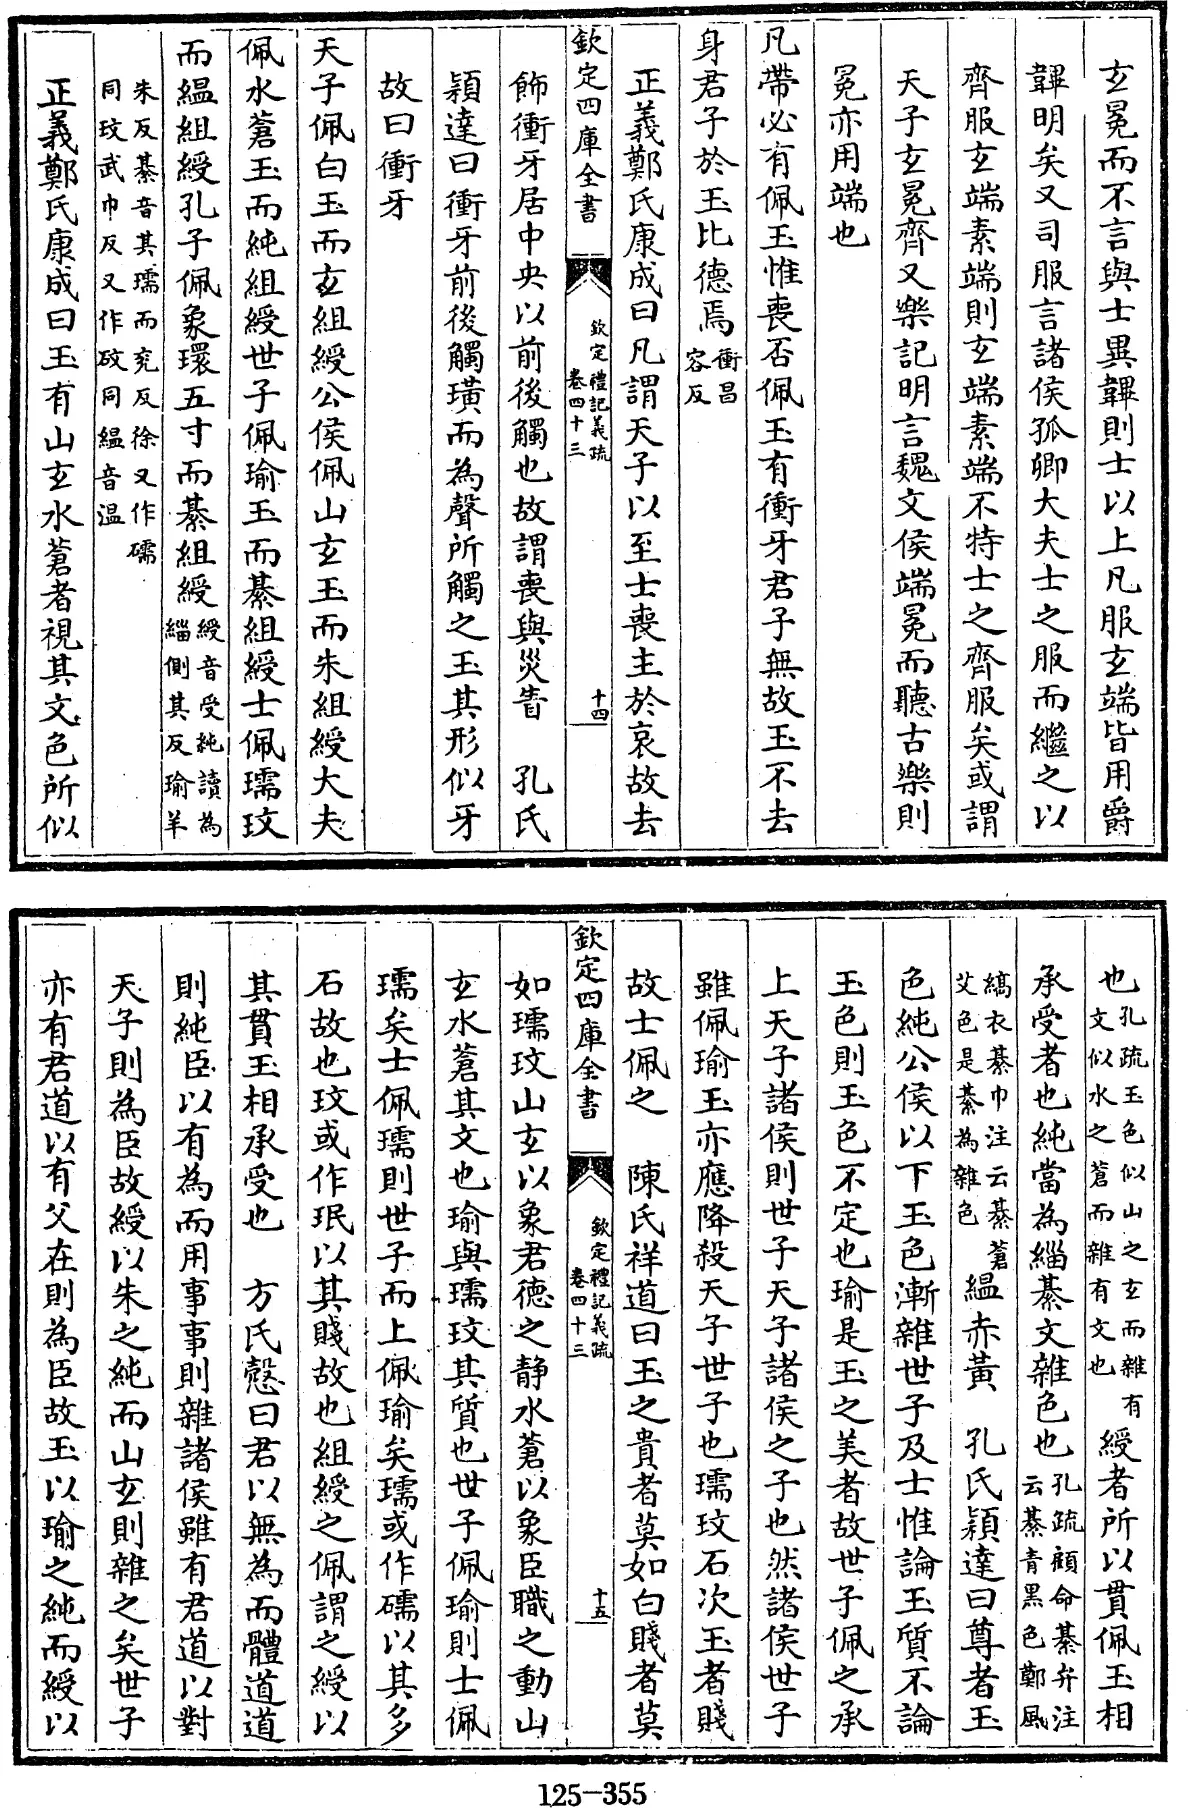 玄冕而不言與士異韠則士以上凡服玄端皆用爵
韠明矣又司服言諸侯孤卿大夫士之服而繼之以
齊服玄端素端則玄端素端不特士之齊服矣或謂
天子玄冕齊又樂記明言魏文侯端冕而聽古樂則
冕亦用端也
凡帶必有佩玉惟喪否佩玉有衝牙君子無故玉不去
身君子於玉比德焉衝昌
容反
正義鄭氏康成曰凡謂天子以至士喪主於哀故去
欽定四庫全書
欽定禮記義疏
卷四十三
十四
飾衝牙居中央以前後觸也故謂喪與災眚 孔氏
穎達曰衝牙前後觸璜而為聲所觸之玉其形似牙
故曰衝牙
天子佩白玉而玄組綬公侯佩山玄玉而朱組綬大夫
佩水蒼玉而純組綬世子佩瑜玉而綦組綬士佩瓀玟
而縕組綬孔子佩象環五寸而綦組綬綬音受純讀為
緇側其反瑜羊
朱反綦音其瓀而兖反徐又作礝
同玟武巾反又作砇同縕音温
正義鄭氏康成曰玉有山玄水蒼者視其文色所似
也孔疏玉色似山之玄而雜有
文似水之蒼而雜有文也
綬者所以貫佩玉相
承受者也純當為緇綦文雜色也孔疏顧命綦弁注
云綦青黑色鄭風
縞衣綦巾注云綦蒼
艾色是綦為雜色
縕赤黃 孔氏穎達曰尊者玉
色純公侯以下玉色漸雜世子及士惟論玉質不論
玉色則玉色不定也瑜是玉之美者故世子佩之承
上天子諸侯則世子天子諸侯之子也然諸侯世子
雖佩瑜玉亦應降殺天子世子也瓀玟石次玉者賤
故士佩之 陳氏祥道曰玉之貴者莫如白賤者莫
欽定四庫全書
欽定禮記義疏
卷四十三
十五
如瓀玟山玄以象君德之静水蒼以象臣職之動山
玄水蒼其文也瑜與瓀玟其質也世子佩瑜則士佩
瓀矣士佩瓀則世子而上佩瑜矣瓀或作礝以其多
石故也玟或作珉以其賤故也組綬之佩謂之綬以
其貫玉相承受也 方氏慤曰君以無為而體道道
則純臣以有為而用事事則雜諸侯雖有君道以對
天子則為臣故綬以朱之純而山玄則雜之矣世子
亦有君道以有父在則為臣故玉以瑜之純而綬以
125-355